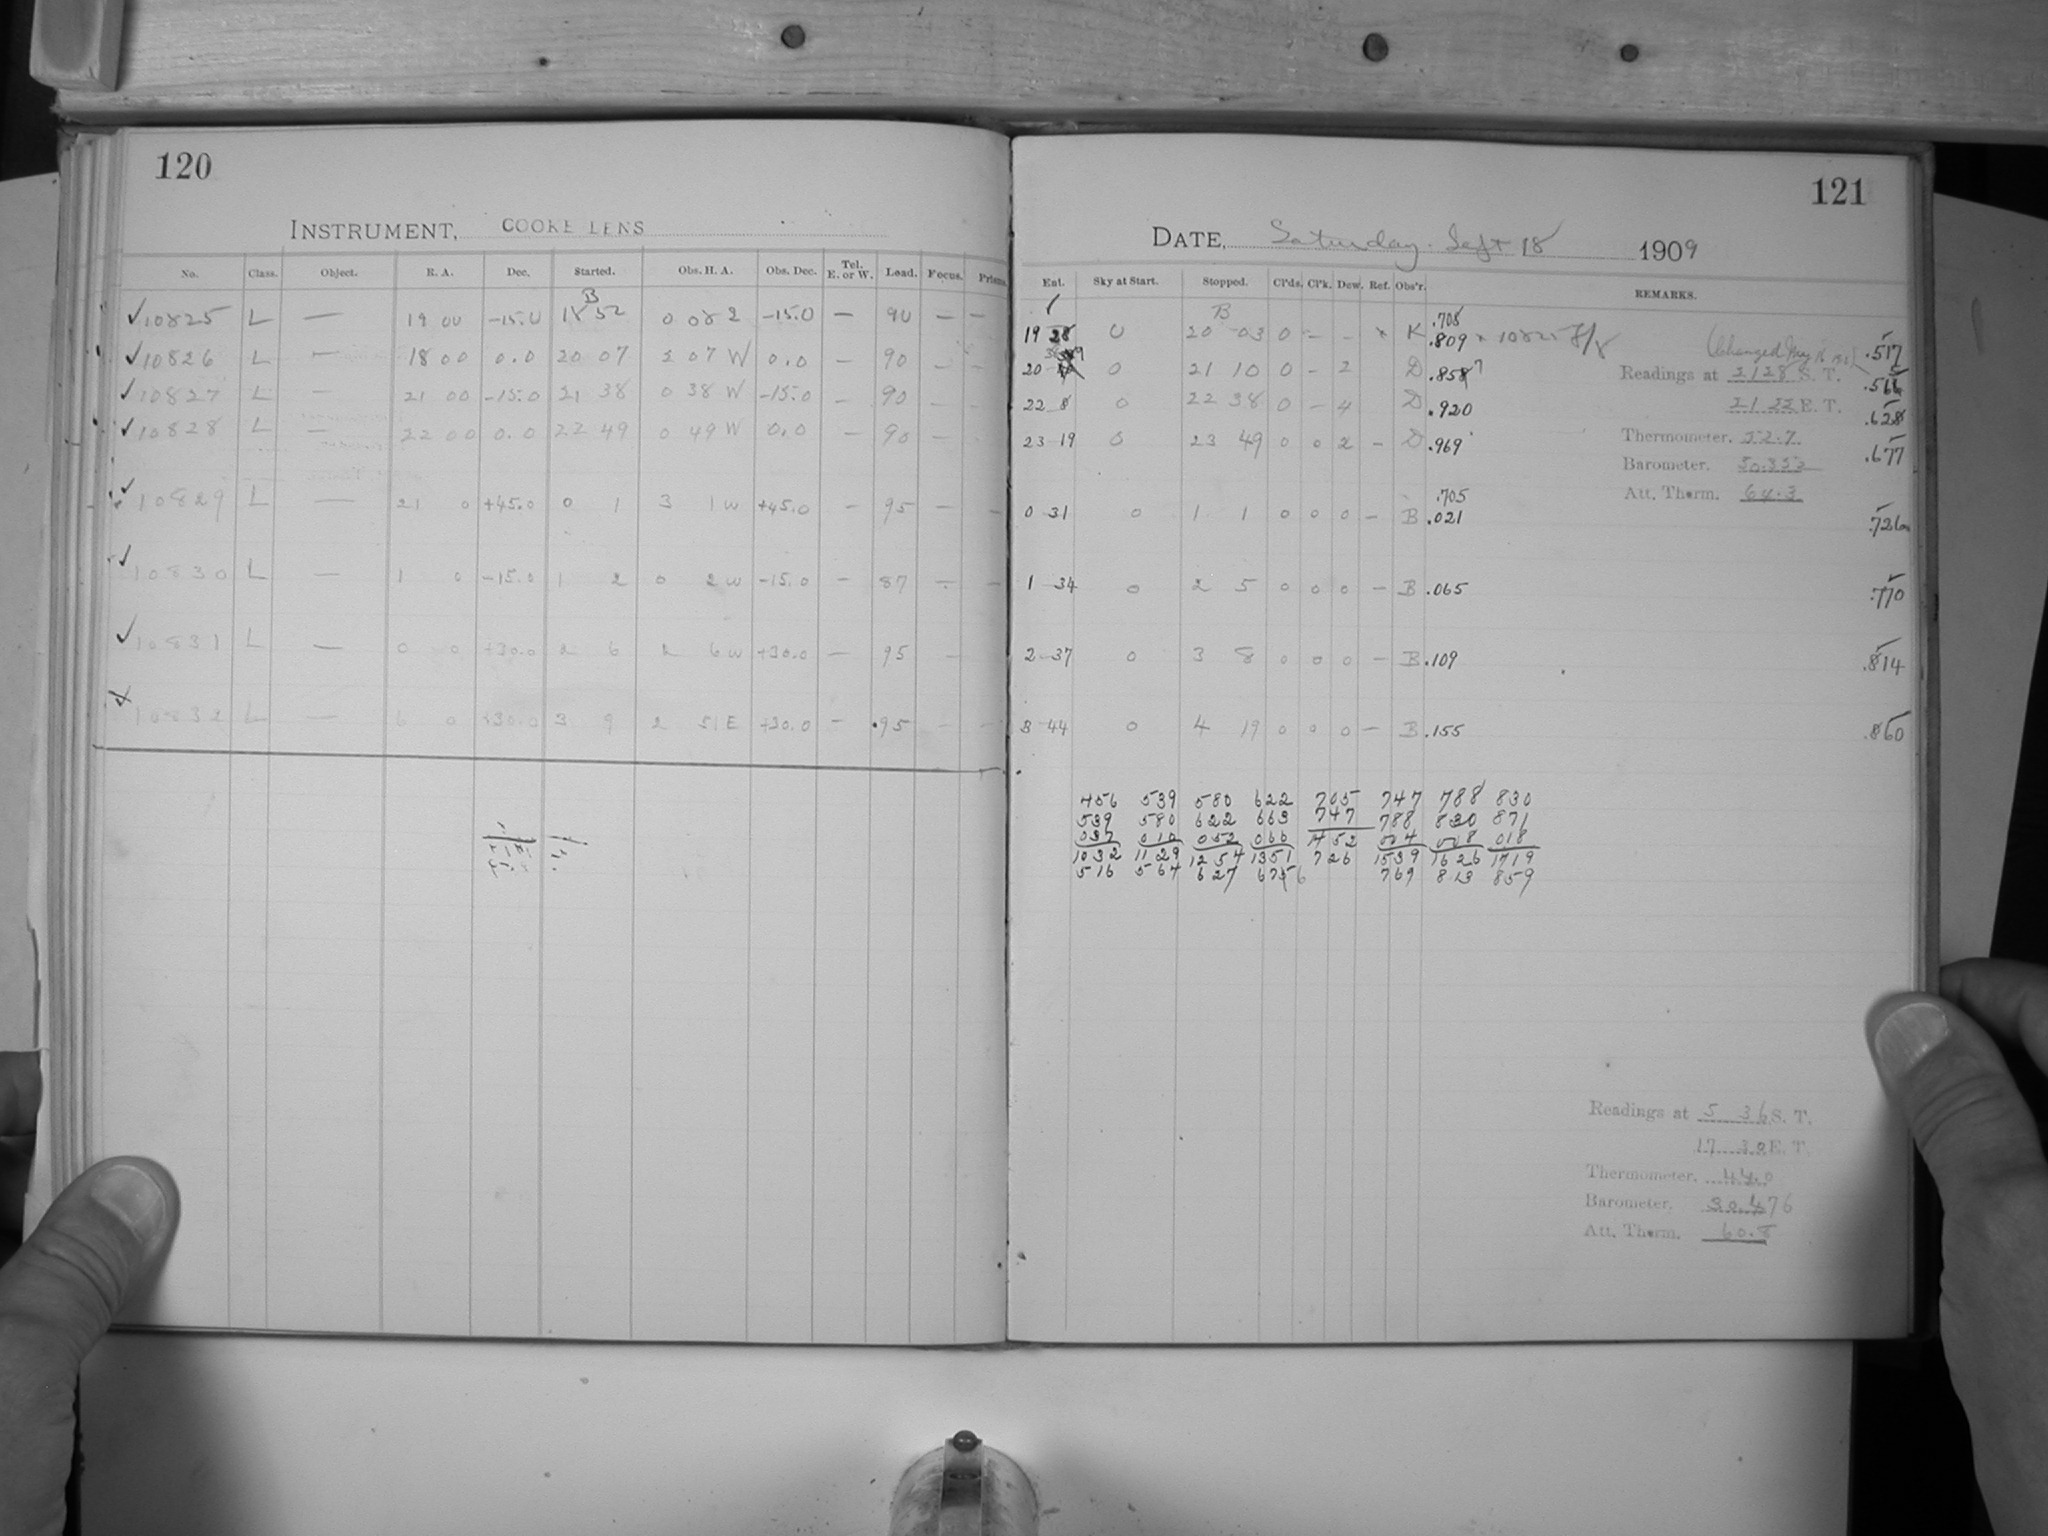 120
INSTRUMENT, COOKE LENS
No. Class. Object. R. A. Dec. Started. Obs. H. A. Obs. Dec. Tel. E. or W. Load. Focus. Prisms.
B
✓10825 L — 19 00 -15.0 18 52 0 08 2 -15.0 — 90 — —
✓10826 L — 18 00 0.0 20 07 2 07 W 0.0 — 90 — —
✓10827 L — 21 00 -15.0 21 38 0 38 W -15.0 — 90 — —
✓10828 L — 22 00 0.0 22 49 0 49 W 0.0 — 90 — —
✓10829 L — 21 0 +45.0 0 1 3 1 W +45.0 — 95 — —
✓10830 L — 1 0 -15.0 1 2 0 2 W -15.0 — 87 — —
✓10831 L — 0 0 +30.0 2 6 2 6 W +30.0 — 95 —
10832 L — 6 0 +30.0 3 9 2 51 E +30.0 — .95 — —
121
DATE, Saturday. Sept 18 1909
Ent. Sky at Start. Stopped. Cl'ds. Cl'k. Dew. Ref. Obs'r. REMARKS.
B
.705
19 28 0 20 03 0 — - × K .809 × 10825 .517
20 0 21 10 0 — 2 D .858 .566
22 8 0 22 38 0 — 4 D .920 .628
23 19 0 23 49 0 0 2 — D .969 .677
.705
0 31 0 1 1 0 0 0 — B .021 .726
1 34 0 2 5 0 0 0 — B .065 .770
2 37 0 3 8 0 0 0 — B .109 .814
3 44 0 4 19 0 0 0 — B .155 .860
Readings at 21 28 S. T.
21 22 E. T.
Thermometer. 52.7
Barometer. 30.352
Att. Therm. 64.3
456 539 580 622 705 747 788 830
539 580 622 663 747 788 830 871
037 010 052 066 1452 004 008 018
1032 1129 1254 1351 726 1539 1626 1719
516 564 627 6756 769 813 859
Readings at 5 36 S. T.
17 30 E. T.
Thermometer. 44.0
Barometer. 30.476
Att. Therm. 60.8